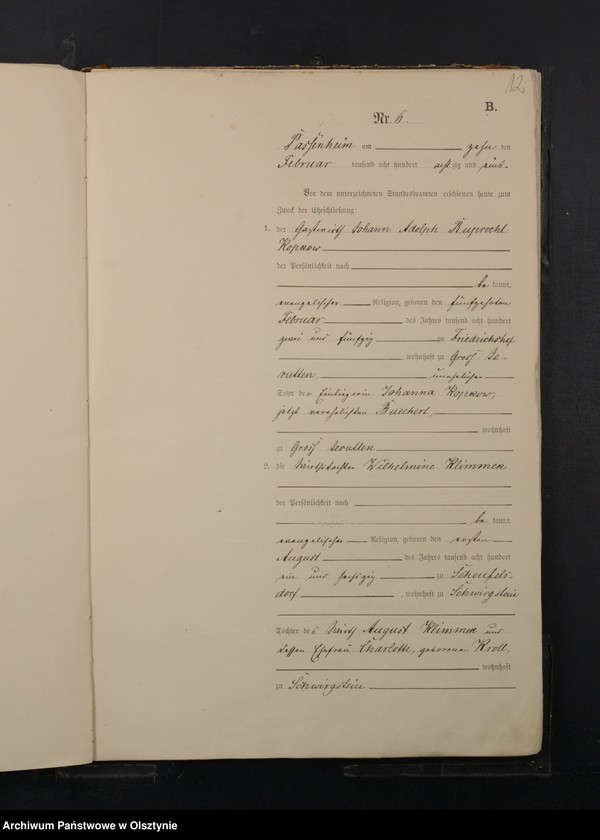 12
B.
Nr. 6.
Passenheim am zehnten
Februar tausend acht hundert achtzig und eins.
Vor dem unterzeichneten Standesbeamten erschienen heute zum
Zweck der Eheschließung:
1. der Gastwirth Johann Adolph Ruprecht
Kopkow
der Persönlichkeit nach
bekannt,
evangelischer Religion, geboren den fünfzehnten
Februar des Jahres tausend acht hundert
zwei und fünfzig zu Friedrichshof
, wohnhaft zu Groß
, unehelicher
Sohn der Einliegerin Johanna Kopkow,
jetzt verehelichten Buechert,
wohnhaft
zu Groß
2. die Wirthstochter Wilhelmine Klimmek
der Persönlichkeit nach
bekannt,
evangelischer Religion, geboren den ersten
August des Jahres tausend acht hundert
ein und sechszig zu Scheufels-
dorf, wohnhaft zu Schwirgstein
Tochter des Wirth August Klimmek und
dessen Ehefrau Charlotte, geborene Kroll,
wohnhaft
zu Schwirgstein
Archiwum Państwowe w Olsztynie